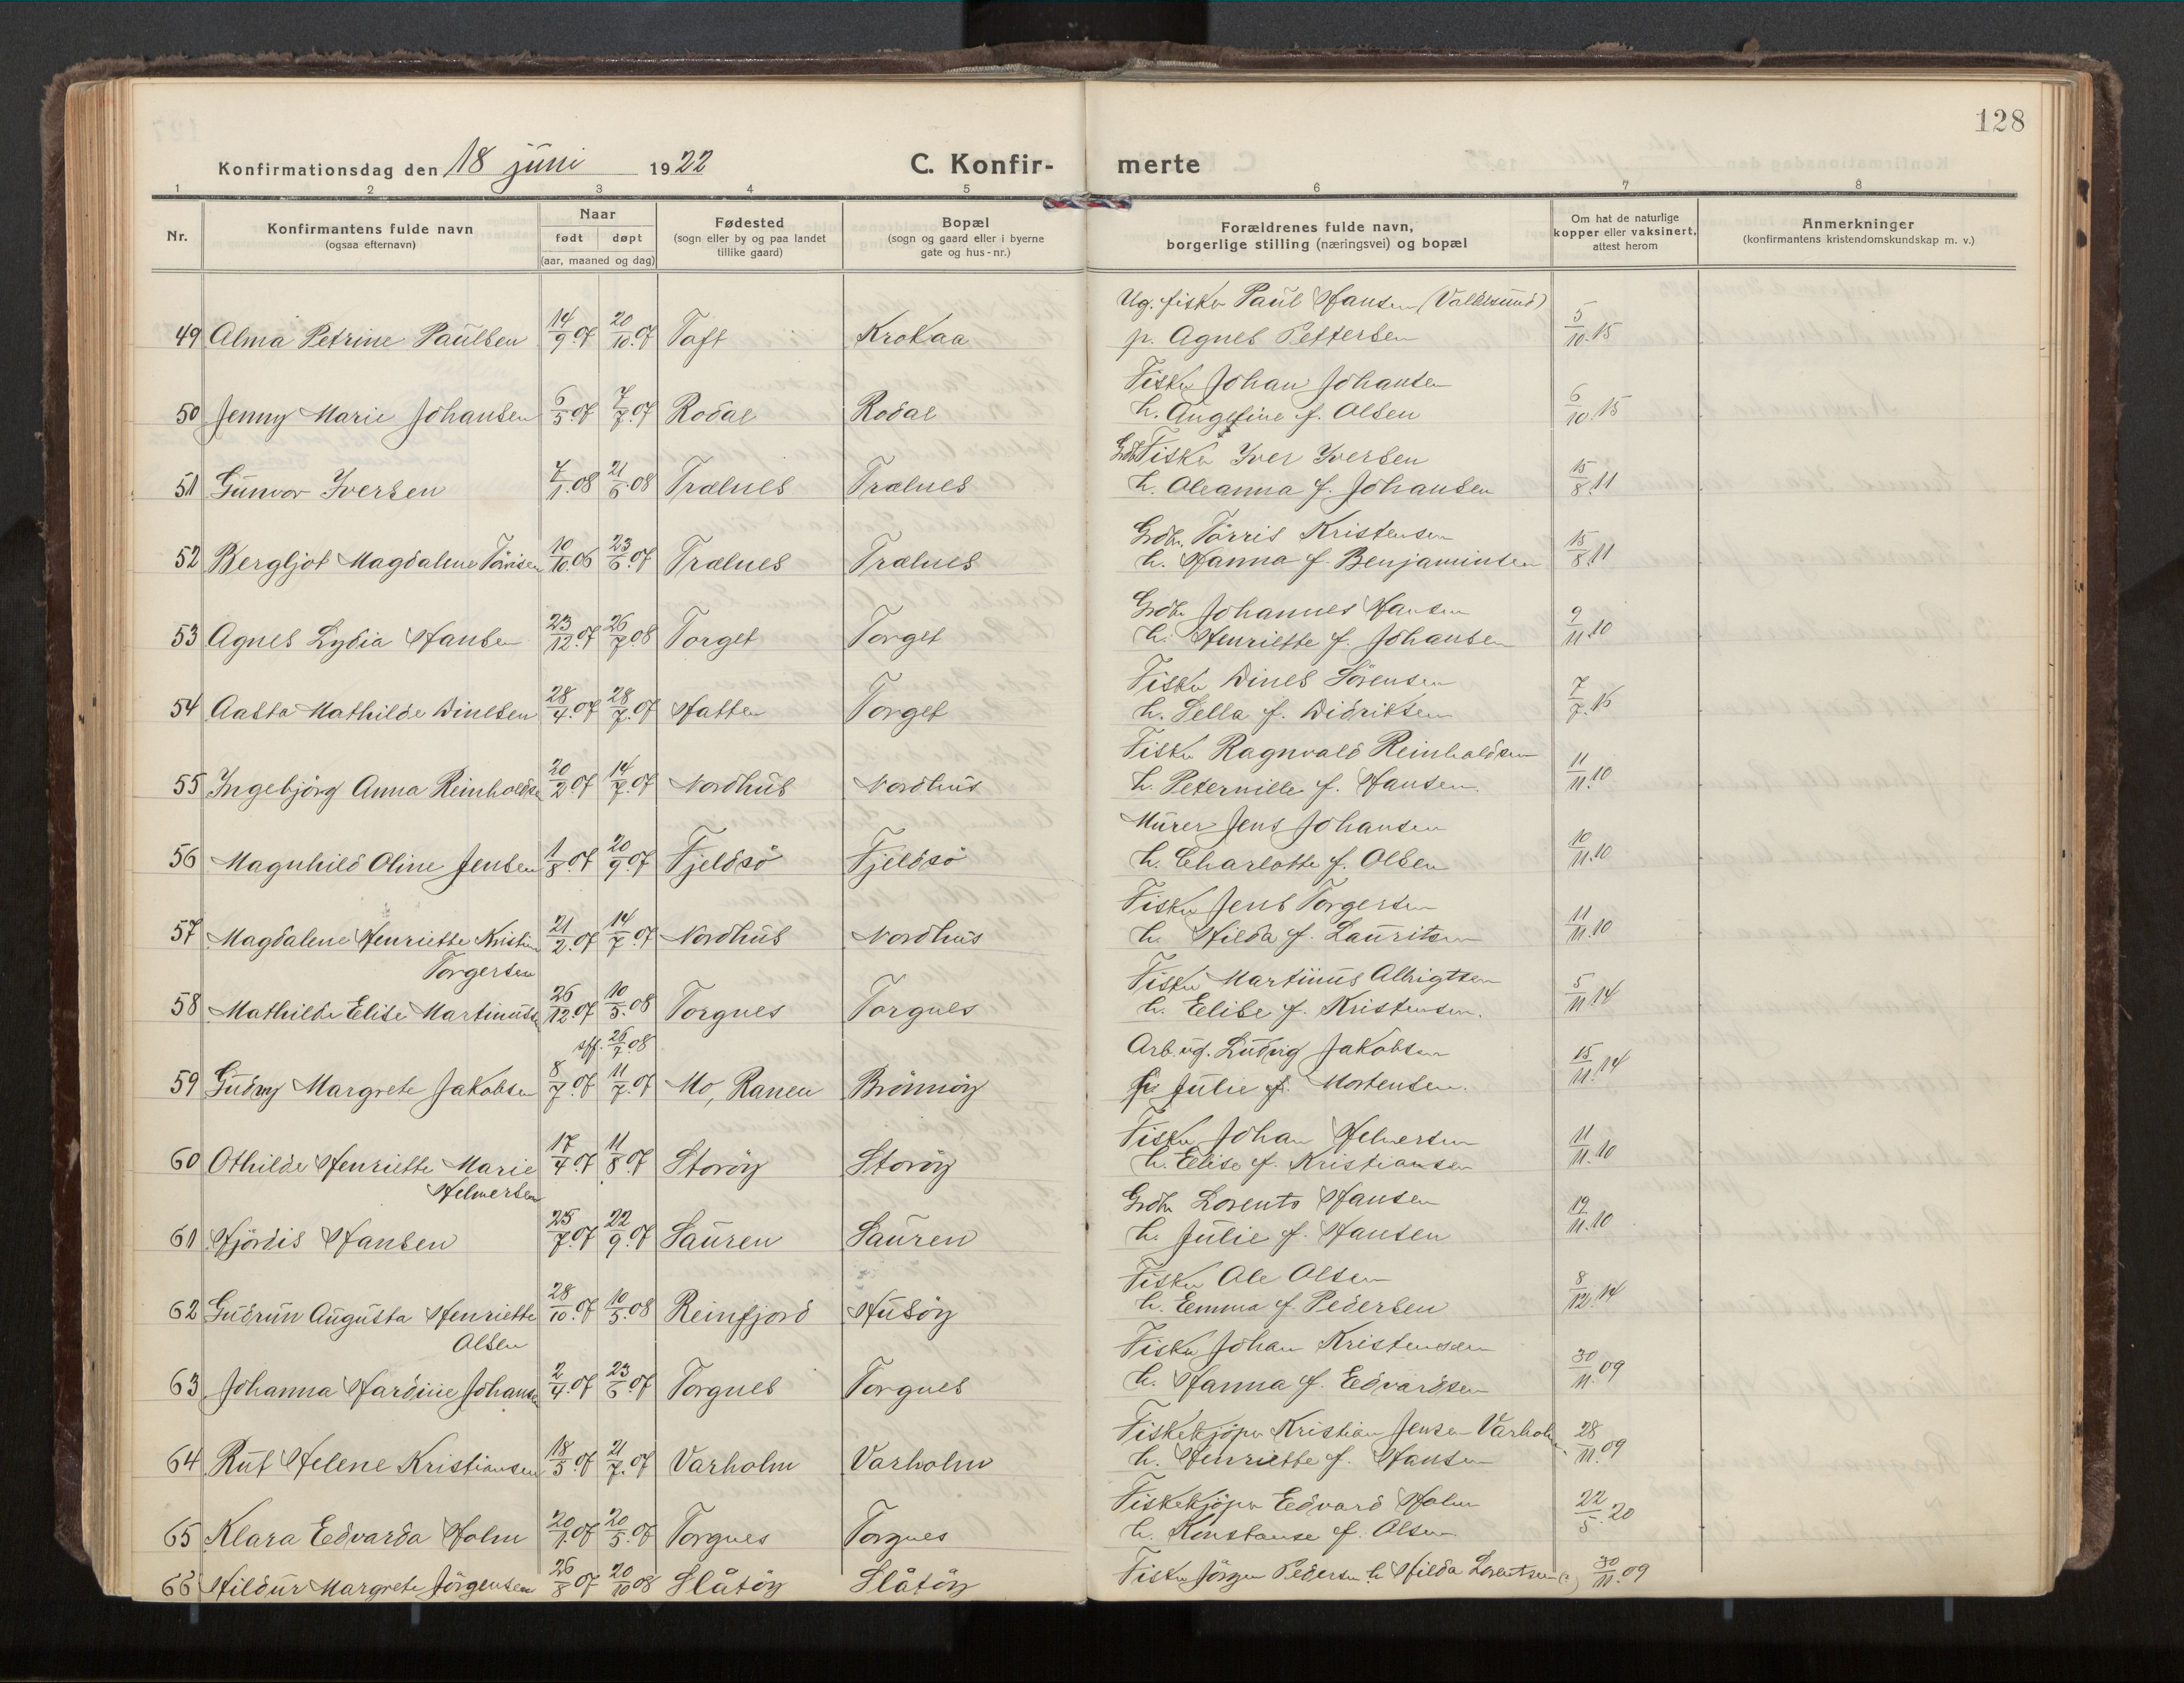 128
Konfirmationsdag den 18 juni 1922 C. Konfir- merte
1 2 3 4 5 6 7 8
Nr. Konfirmantens fulde navn (ogsaa efternavn) Naar født døpt (aar, maaned og dag) Fødested (sogn eller by og paa landet tillike gaard) Bopæl (sogn og gaard eller i byerne gate og hus-nr.) Forældrenes fulde navn, borgerlige stilling (næringsvei) og bopæl Om hat de naturlige kopper eller vaksinert, attest herom Anmerkninger (konfirmantens kristendomskundskap m. v.)
Ug. fisker Paul Hansen (Valdesund)
49 Alma Petrine Paulsen 14/9.07 20/10.07 Toft Krokaa p. Agnes Pettersen 5/10.15
Fisker Johan Johansen
50 Jenny Marie Johansen 6/5.07 7/7.07 Rodal Rodal h. Angeline f. Olsen 6/10.15
Gdbr Fisker Iver Iversen
51 Gunvor Iversen 7/1.08 21/6.08 Trælnes Trælnes h. Oleanna f. Johansen 15/8.11
Grdbr. Tørris Kristensen
52 Bergljot Magdalene Tørrisen 10/10.06 23/6.07 Trælnes Trælnes h. Hanna f. Benjaminsen 15/8.11
Grdbr Johannes Hansen
53 Agnes Lydia Hansen 23/12.07 26/7.08 Torget Torget h. Henriette f. Johansen 9/11.10
Fisker Dines Sörensen
54 Aasta Mathilde Dinesen 28/4.07 28/7.07 Hatten Torget h. Sella f. Didriksen 7/7.16
Fisker Ragnvald Reinholdsen
55 Ingebjörg Anna Reinholdsen 20/2.07 14/7.07 Nordhus Nordhus h. Peternille f. Hansen. 11/11.10
Murer Jens Johansen
56 Magnhild Oline Jensen 1/8.07 20/9.07 Fjeldsö Fjeldsö h. Charlotte f. Olsen 10/11.10
Fisker Jens Torgersen
57 Magdalene Henriette Kristine 21/2.07 14/7.07 Nordhus Nordhus h. Hilda f. Lauritsen 11/11.10
Torgersen
Fisker Martinus Albrigtsen
58 Mathilde Elise Martinussen 26/12.07 10/5.08 Torgnes Torgnes h. Elise f. Kristensen. 5/11.14
stf. 26/7.08
Arb. ug. Ludvig Jakobsen
59 Gudny Margrete Jakobsen 8/7.07 11/7.07 Mo, Ranen Brönnöy p. Julie f. Mortensen. 15/11.14
Fisker Johan Helmersen
60 Othilde Henriette Marie 17/4.07 11/8.07 Storöy Storöy h. Elise f. Kristiansen 11/11.10
Helmersen
Grdbr Lorents Hansen
61 Hjördis Hansen 25/7.07 22/9.07 Sauren Sauren h. Julie f. Hansen 12/11.10
Fisker Ole Olsen
62 Gudrun Augusta Henriette 28/10.07 10/5.08 Reinfjord Husöy h. Emma f. Pedersen 8/12.14
Olsen
Fisker Johan Kristensen
63 Johanna Hardine Johansen 2/4.07 23/6.07 Torgnes Torgnes h. Hanna f. Edvardsen 30/11.09
Fiskekjöper Kristian Jensen Varholm
64 Rut Helene Kristiansen 18/5.07 21/7.07 Varholm Varholm h. Henriette f. Hansen 28/11.09
Fiskekjöper Edvard Holm
65 Klara Edvarda Holm 20/1.07 20/5.07 Torgnes Torgnes h. Konstanse f. Olsen 22/5.20
66 Hildur Margrete Jörgensen 26/8.07 20/10 08 Slåtöy Slåtöy Fisker Jörgen Pedersen h. Hilda Lorentsen (?) 30/11.09